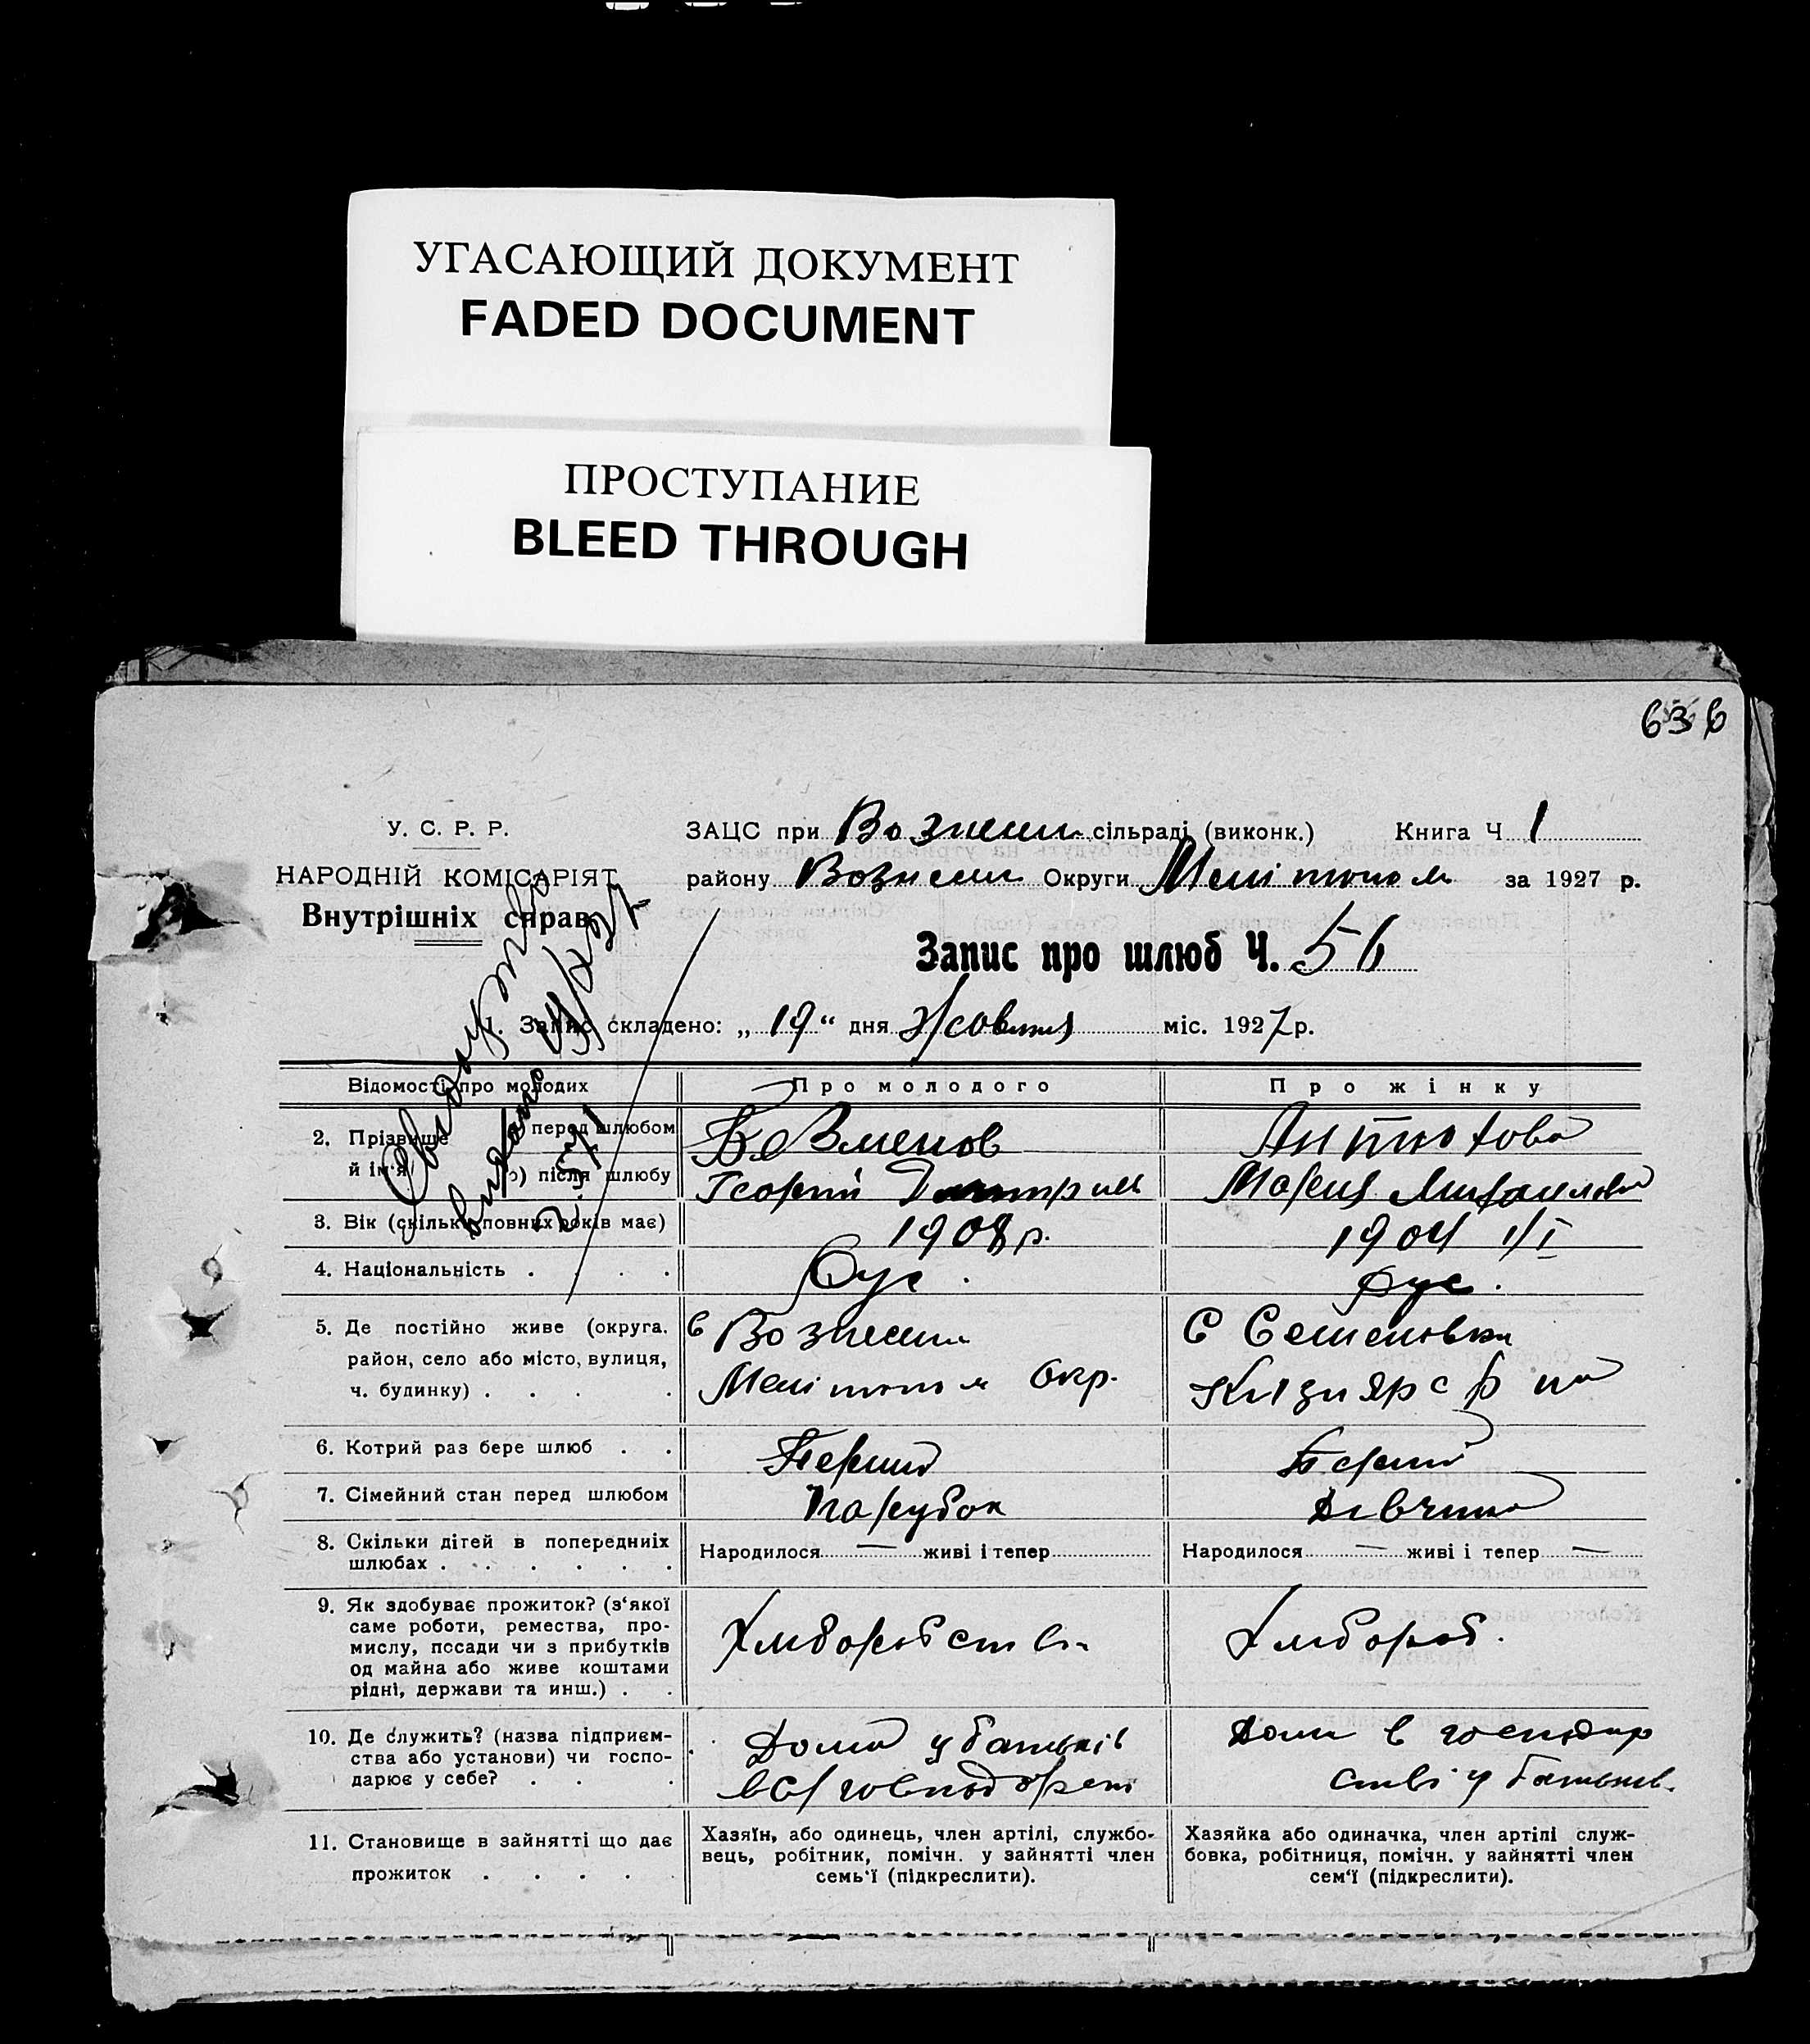 УГАСАЮЩИЙ ДОКУМЕНТ
FADED DOCUMENT
ПРОСТУПАНИЕ
BLEED THROUGH
636
У. С. Р. Р.
НАРОДНІЙ КОМІСАРІЯТ
Внутрішніх справ.
ЗАЦС при Вознесен сільраді (виконк.) Книга Ч 1
району Вознесен Округи Мелітопол за 1927 р.
Запис про шлюб Ч. 56
1. Запис складено: „ 19 “ дня Жовтня міс. 1927 р.
Відомості про молодих
Про молодого
Про жінку
2. Прізвище й ім'я
перед шлюбом
) після шлюбу
Антюхова
Георгій
Мария
3. Вік (скільки повних років має)
1908 р.
1904 1/I
4. Національність . . . .
Рус.
Рус.
5. Де постійно живе (округа,
район, село або місто, вулиця,
ч. будинку) . . . .
с Вознесен
Мелітопол Окр.
С Семеновка
6. Котрий раз бере шлюб . .
Перший
Перший
7. Сімейний стан перед шлюбом
Парубок
Дівчина
8. Скільки дітей в попередниіх
шлюбах . . . . . .
Народилося — живі і тепер
Народилося — живі і тепер —
9. Як здобуває прожиток? (з‘якої
саме роботи, ремества, про-
мислу, посади чи з прибутків
од майна або живе коштами
рідні, держави та инш.) . .
Хліборобств
Хлібороб.
10. Де служить? (назва підприєм-
ства або установи) чи госпо-
дарює у себе? . . .
Дома у батьків
Дома в господар
стві у батьків.
11. Становище в зайнятті що дає
прожиток . . . . .
Хазяїн, або одинець, член артілі, службо-
вець, робітник, помічн. у зайнятті член
семь‘ї (підкреслити).
Хазяйка або одиначка, член артілі служ-
бовка, робітниця, помічн. у зайнятті член
сем‘ї (підкреслити).